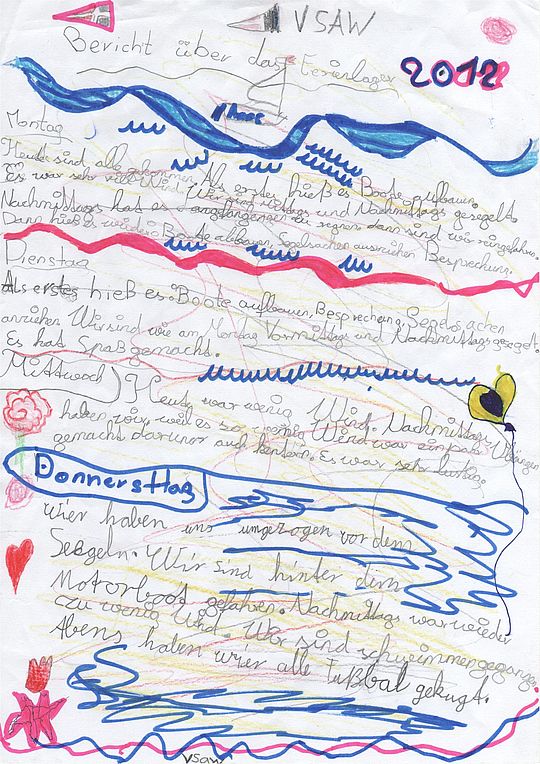 VSAW
Bericht über das Ferienlager 2012
Montag
Heute sind alle gekommen. Als erstes hieß es Boote aufbauen.
Es war sehr viel Wind. Wir sind mittags und Nachmittags gesegelt.
Nachmittags hat es angfangengen zu regnen, dann sind wir reingefahren.
Dann hieß es wieder: Boote abbauen, Segelsachen ausziehen Besprechung.
Dienstag
Als erstes hieß es: Boote aufbauen, Besprechung,
anziehen. Wir sind wie am Montag Vormittags und Nachmittags gesegelt.
Es hat Spaß gemacht.
Mittwoch
Heute war wenig Wind. Nachmittags
haben wir, weil es so wenig Wind war ein paar Übungen
gemacht darunor auch kentern. Es war sehr lustig.
Donnersttag
Wier haben uns umgezogen vor dem
Seegeln. Wir sind hinter dem
Motorboot gefahren. Nachmittags war wieder
zu wenig Wind. Wir sind schwimmen gegangen.
Abens haben wier alle Fußbal gekugt.
VSaW